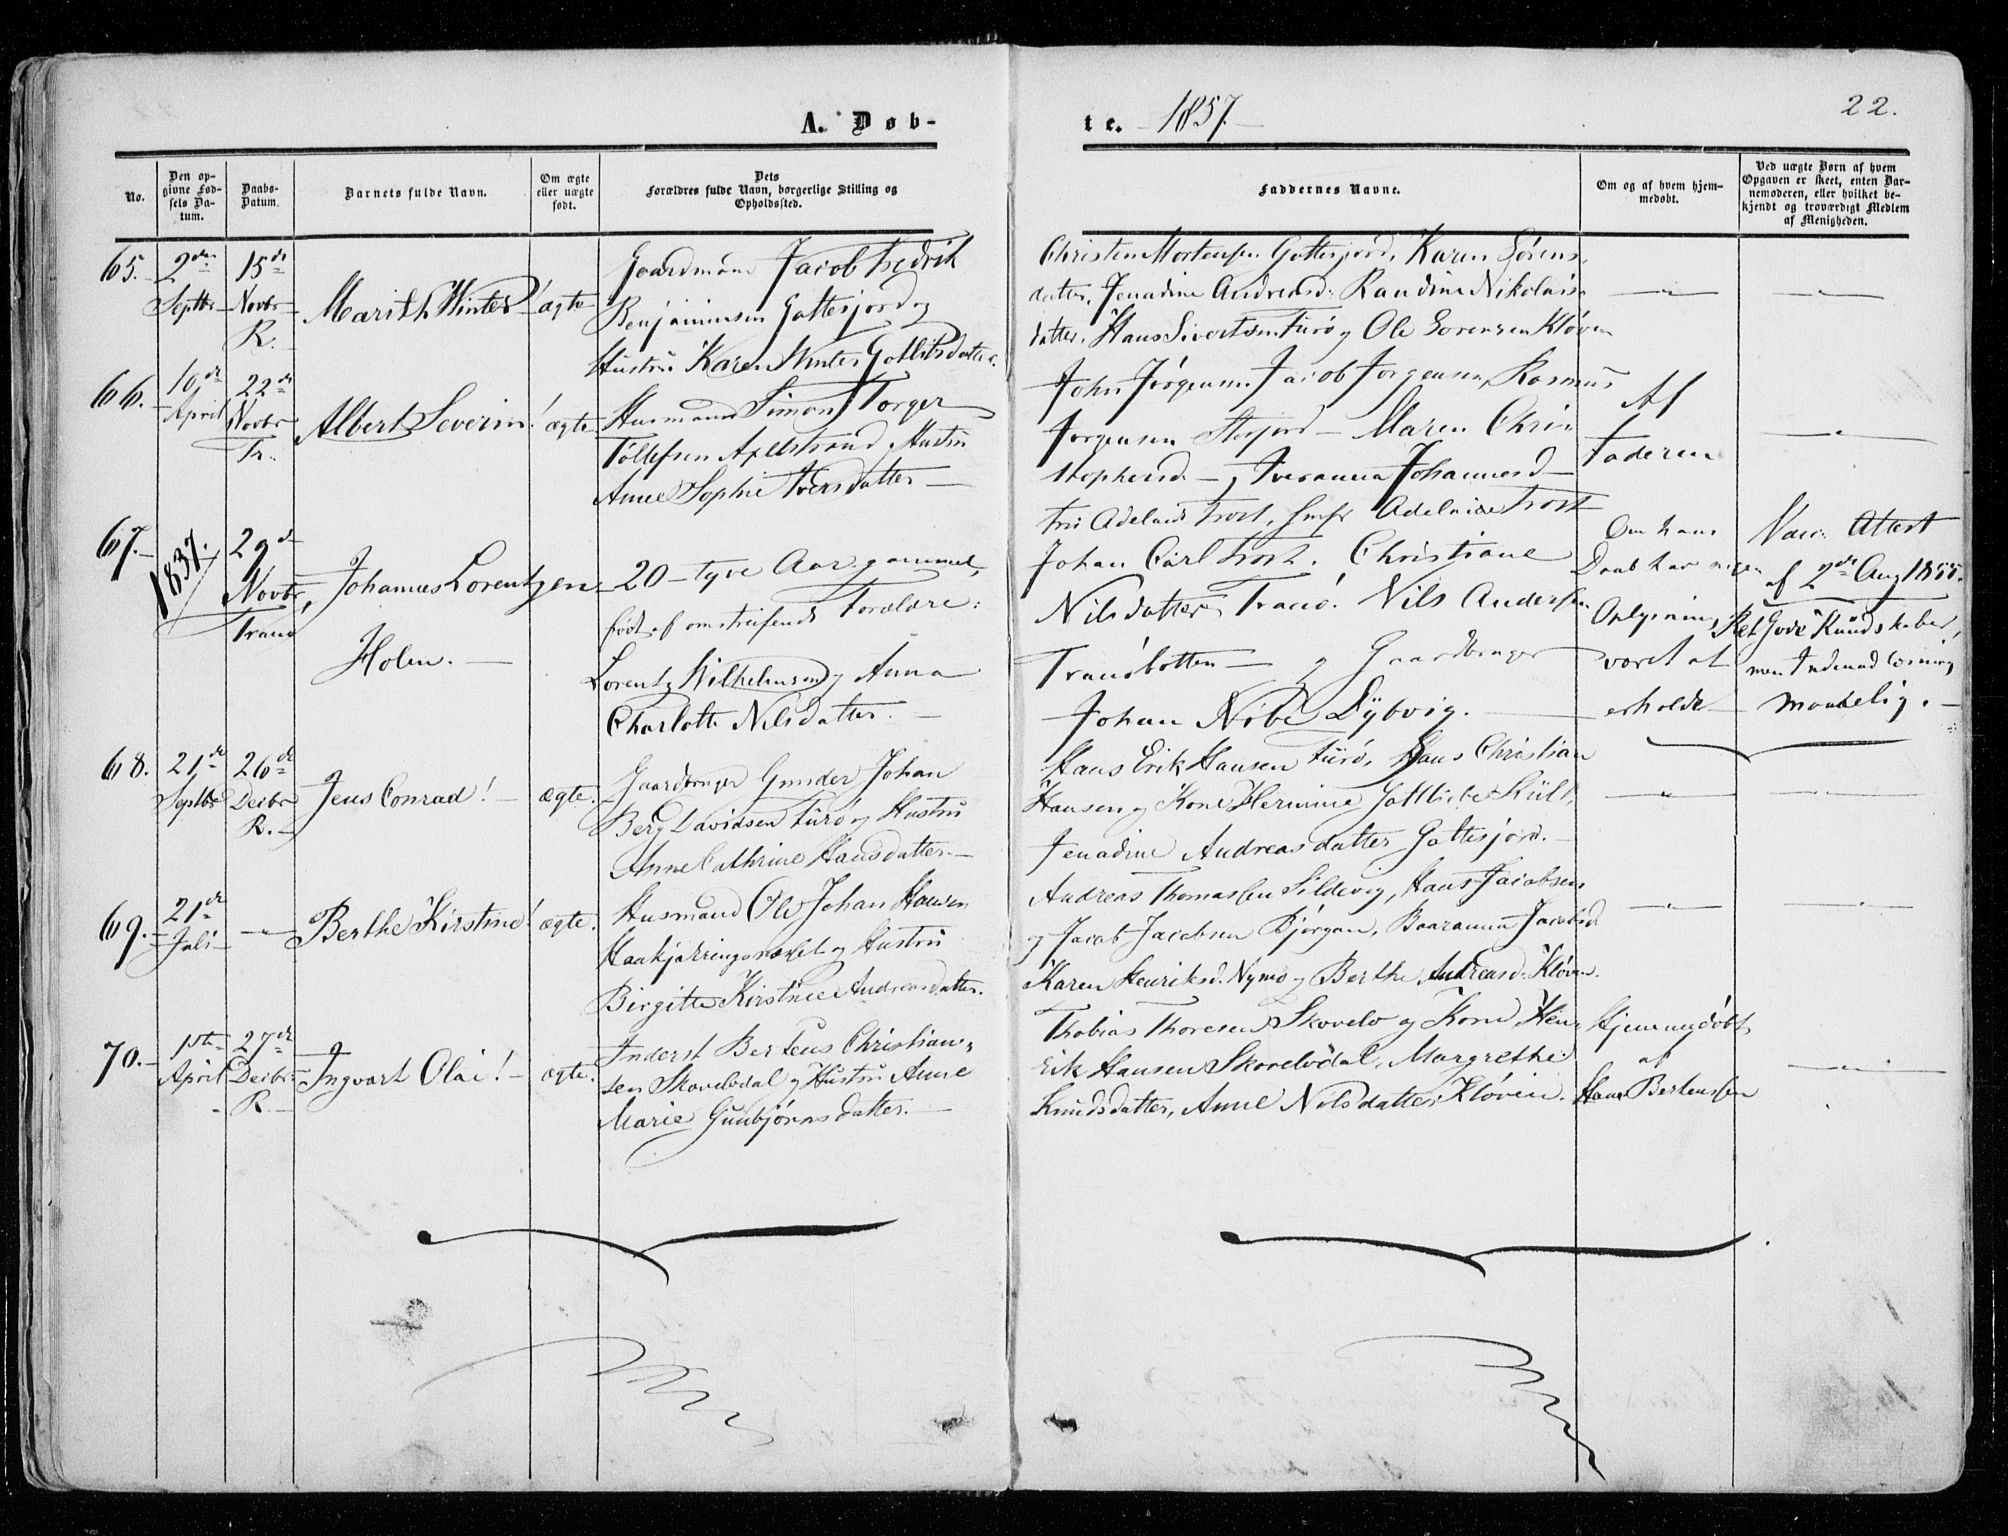 A. Døb-
te. 1857.
22.
No.
Den opgivne Fødsels Datum.
Daabs-Datum.
Barnets fulde Navn.
Om ægte eller uægte født.
Dets Forældres fulde Navn, borgerlige Stilling og Opholdssted.
Faddernes Navne.
Om og af hvem hjemmedøbt.
Ved uægte Børn af hvem Opgaven er skeet, enten Barnemoderen, eller hvilket bekjendt og troværdigt Medlem af Menigheden.
65.
2den Septbr
15de Novbr R.
Marith Winter!
ægte
Gaardmand Jacob Fredrik
Benjaminsen Gottesjord og
Hustru Karen Winter Gotlibsdatter.
Christen Mortensen Gottesjord, Karen Sørens-
datter, Jenadine Andreasd: Randine Nikolais-
datter, Hans Sivertsen Furø og Ole Sorensen Kløven
66.
10de April
22de Novbr Tr.
Albert Severin!
ægte
Husmand Simon Torger
Tollefsen Apelstrand, Hustru
Anne Sophie Iversdatter
John Jørgensen, Jacob Jorgensen, Rasmus
Jorgensen Storjord Maren Chri-
stophersd , Iveranna Johannesd
Af
Faderen
67.
1837.
29de Novbr, Tranø
Johannes Lorentzen
Holm.
20 tyve Aar gammel,
født af omstreifende Forældre:
Lorentz Wilhelmsen og Anna
Charlotte Nilsdatter.
Fru Adelaide Trost, Jmfr Adelaide Trost
Johan Carl Trost. Christiane
Nilsdatter Tranø. Nils Andersen
Tranøbotten og Gaardbruger
Johan Nibe Dybvig.
Om hans
Daab har ingen
Oplysning
været at
erholde
Vacc. Attest
af 2de Aug 1855.
Ret Gode Kundskaber,
men Indenadlæsning
maadelig.
68.
21de Septbr
26de Decbr R.
Jens Conrad!
ægte.
Gaardbruger Gunder Johan
Berg Davidsen Furø og Hustru
Anne Cathrine Hansdatter.
Hans Erik Hansen Furø, Hans Christian
Hansen og Kone Hermine Gottliebe Kült,
Jenadine Andreasdatter Gottesjord.
69.
21de Juli
Berthe Kirstine!
ægte.
Husmand Ole Johan Hansen
Haakjærringsnæset og Hustru
Birgitte Kirstine Andreasdatter.
Andreas Thomassen Sildevig, Hans Jacobsen
og Jacob Jacobsen Bjørgan, Baaranna Jacobsd
Karen Henriksd. Nymo og Berthe Andreasd. Kløven.
70.
1ste April
27de Decbr R.
Ingvart Olai!
ægte.
Inderst Berteus Christian-
sen Skovelvdal og Hustru Anne
Marie Gunbjørnsdatter.
Thobias Thoresen Skovelv og Kone, Hen-
Erik Hansen Skovelvdal, Margrethe
Knudsdatter, Anne Nilsdatter Kløven.
Hjemmedøbt
af
Hans Bertenssen